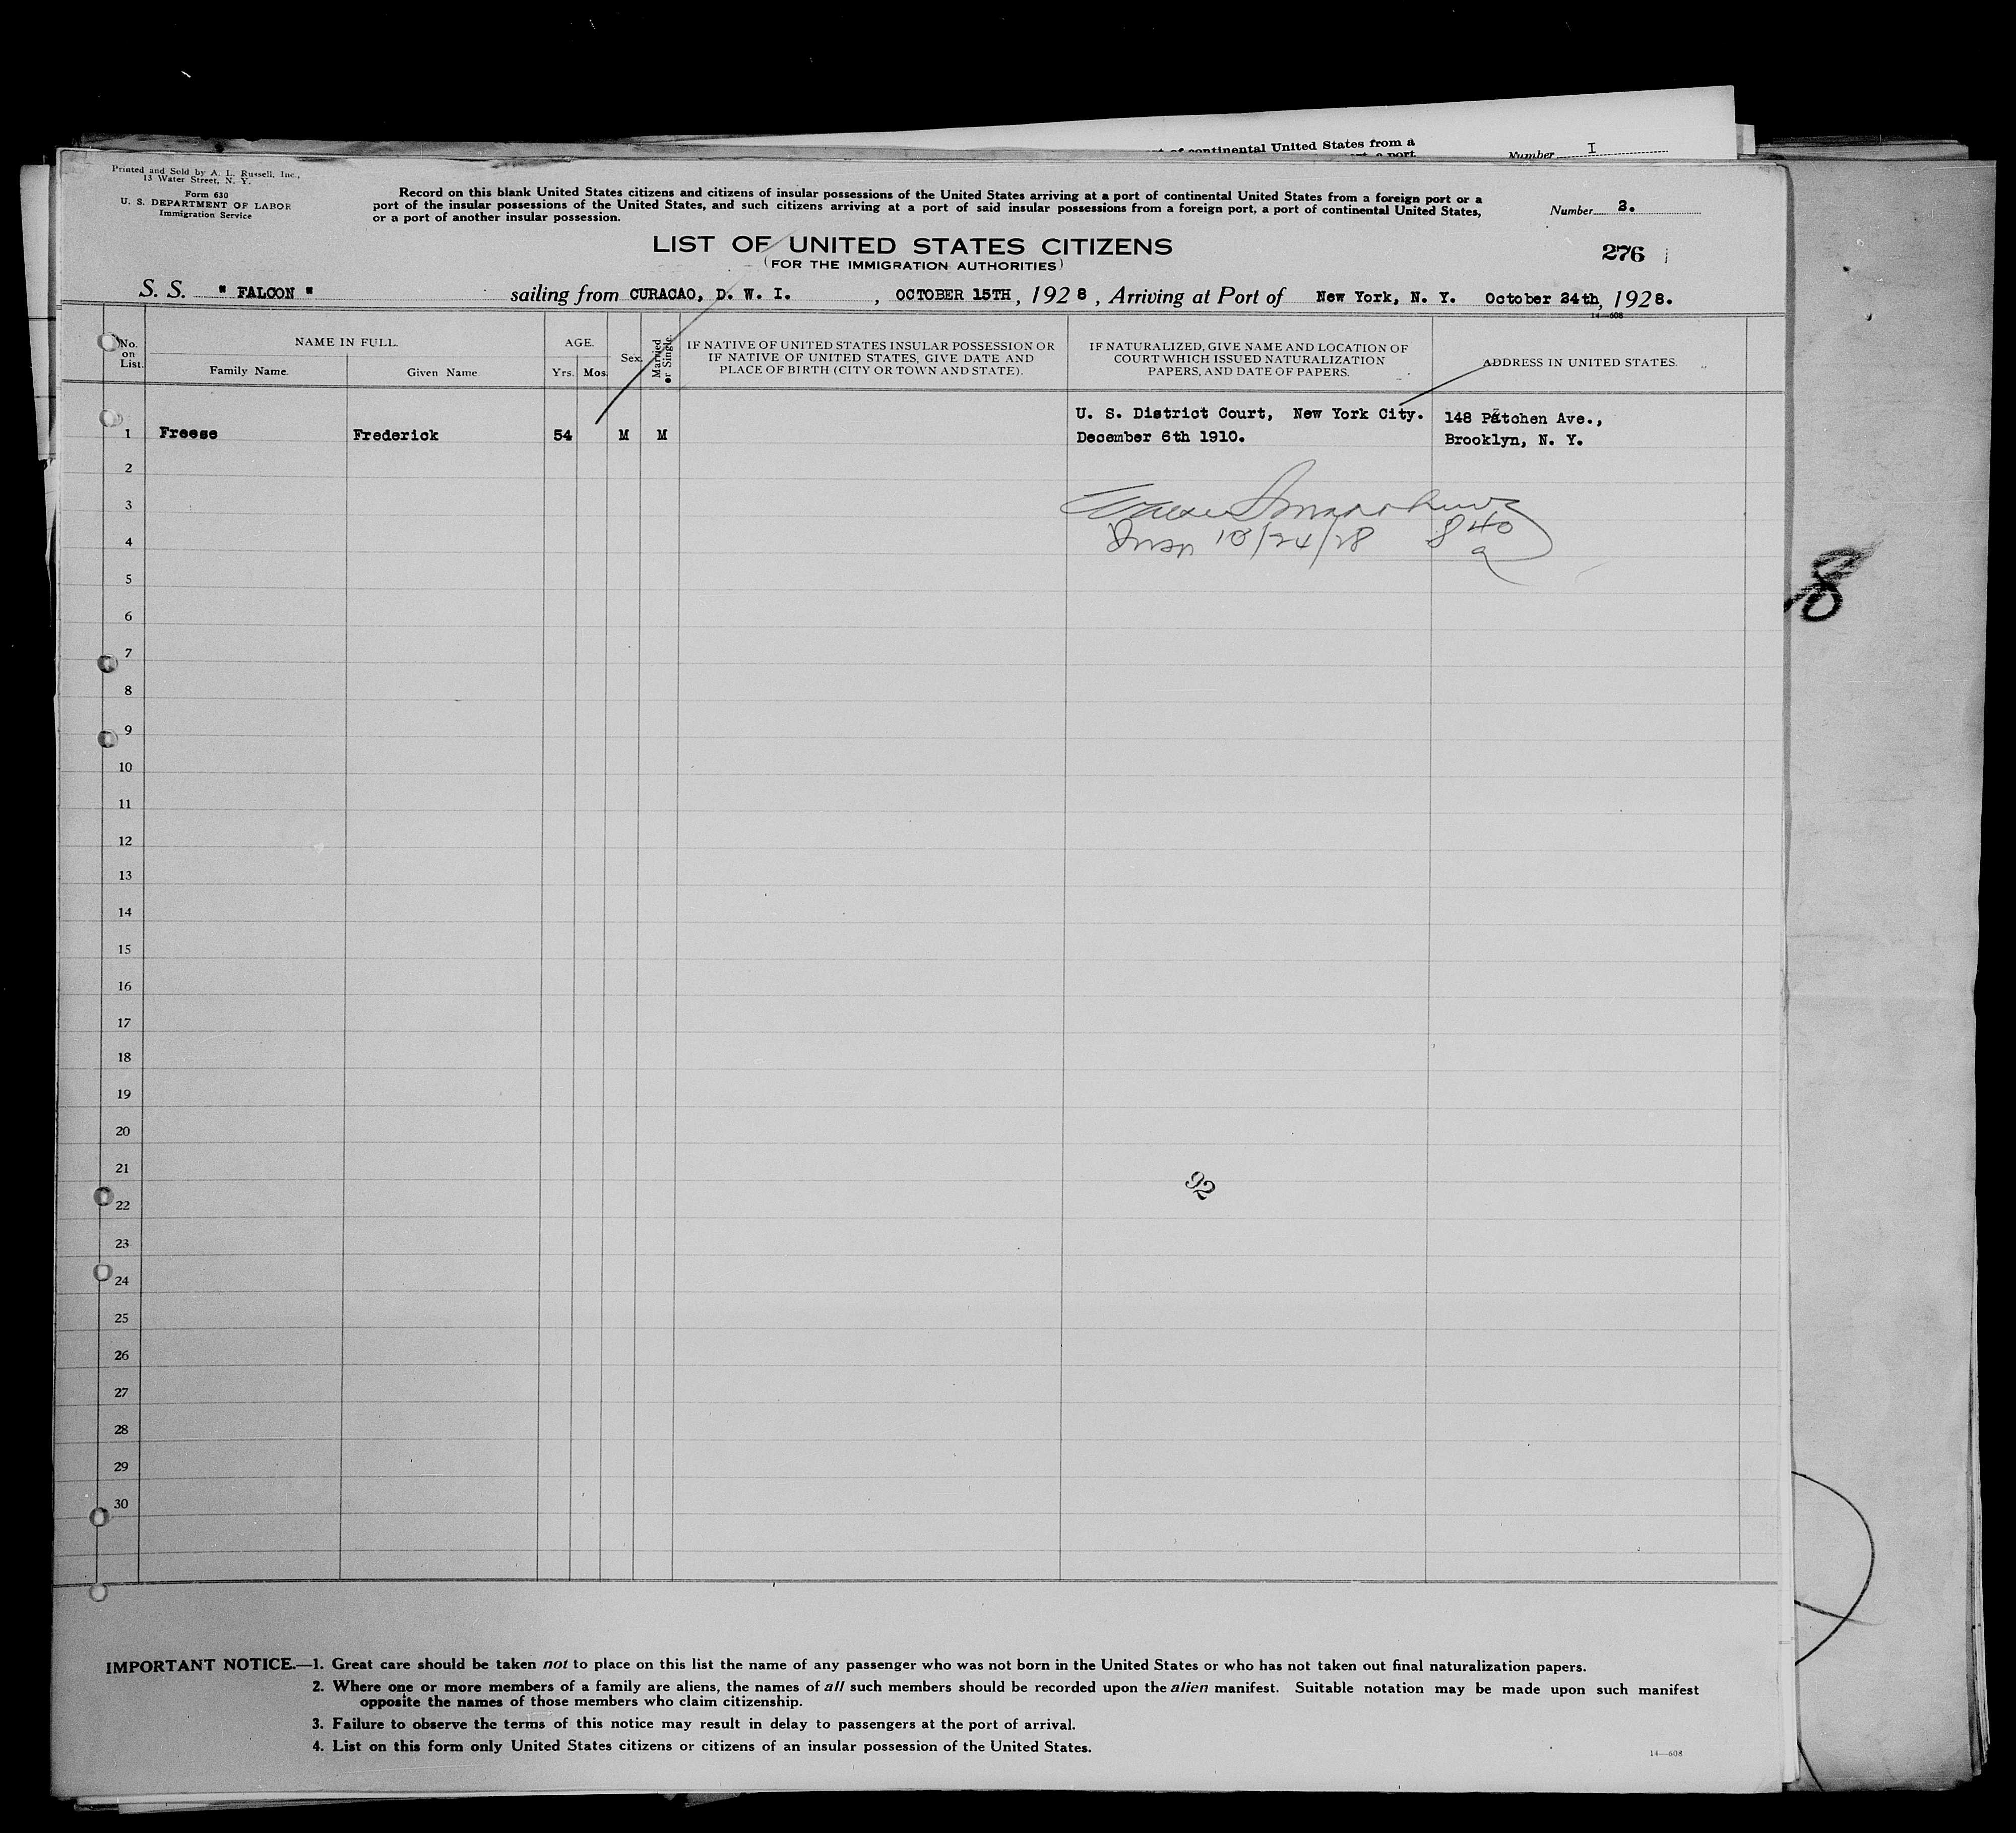 of continental United States from a
a port
Number I
Printed and Sold by A. L. Russell, Inc.,
13 Water Street, N. Y.
Form 630
U. S. DEPARTMENT OF LABOR
Immigration Service
Record on this blank United States citizens and citizens of insular possessions of the United States arriving at a port of continental United States from a foreign port or a
port of the insular possessions of the United States, and such citizens arriving at a port of said insular possessions from a foreign port, a port of continental United States,
or a port of another insular possession.
Number 3.
LIST OF UNITED STATES CITIZENS
(FOR THE IMMIGRATION AUTHORITIES)
276
S. S. " FALCON " sailing from CURACAO, D. W. I. , OCTOBER 15TH, 192 8 , Arriving at Port of New York, N. Y. October 24th, 1928.
14—608
No. on List.
NAME IN FULL.
Family Name.
Given Name
AGE.
Yrs.
Mos.
Sex.
Married or Single.
IF NATIVE OF UNITED STATES INSULAR POSSESSION OR
IF NATIVE OF UNITED STATES, GIVE DATE AND
PLACE OF BIRTH (CITY OR TOWN AND STATE).
IF NATURALIZED, GIVE NAME AND LOCATION OF
COURT WHICH ISSUED NATURALIZATION
PAPERS, AND DATE OF PAPERS.
ADDRESS IN UNITED STATES.
U. S. District Court, New York City. 148 Patchen Ave.,
1 Freese Frederick 54 M M December 6th 1910. Brooklyn, N. Y.
2
3
4 10/24/28 840
a
5
6
7
8
9
10
11
12
13
14
15
16
17
18
19
20
21
92
22
23
24
25
26
27
28
29
30
8
IMPORTANT NOTICE.—1. Great care should be taken not to place on this list the name of any passenger who was not born in the United States or who has not taken out final naturalization papers.
2. Where one or more members of a family are aliens, the names of all such members should be recorded upon the alien manifest. Suitable notation may be made upon such manifest
opposite the names of those members who claim citizenship.
3. Failure to observe the terms of this notice may result in delay to passengers at the port of arrival.
4. List on this form only United States citizens or citizens of an insular possession of the United States.
14—608